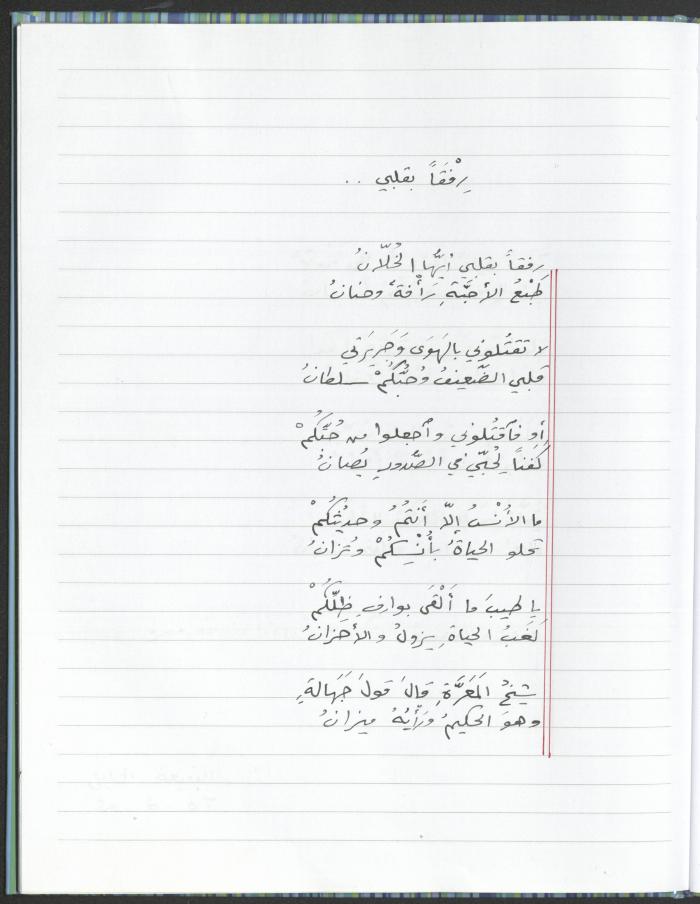 رِفْقَاً بقلبي ..
رفقاً بقلبي أيُّها الخُلّانُ
طَبْعُ الأحبَّةِ رَأْفةٌ وحنانُ
لا تقتُلوني بالهَوَى وَجَرِيرَتي
قلبي الضَّعيفُ وحُبُّكُمْ سلطانُ
أو فٱقتُلوني وٱجعلوا من حُبِّكُمْ
كَفناً لِحُبّي في الصُّدورِ يُصانُ
ما الأُنْسُ إلّا أَنتُمُ وحديثُكُمْ
تحلو الحياةُ بأُنْسِكُمْ وتُزانُ
يا طيبَ ما أَلْقَى بوارفِ ظِلِّكُمْ
تَعَبُ الحياةِ يزولُ والأحزانُ
شيخُ المَعَرَّةِ قالَ قولَ جَهالةٍ
وهوَ الحكيمُ ورَأْيُهُ ميزانُ